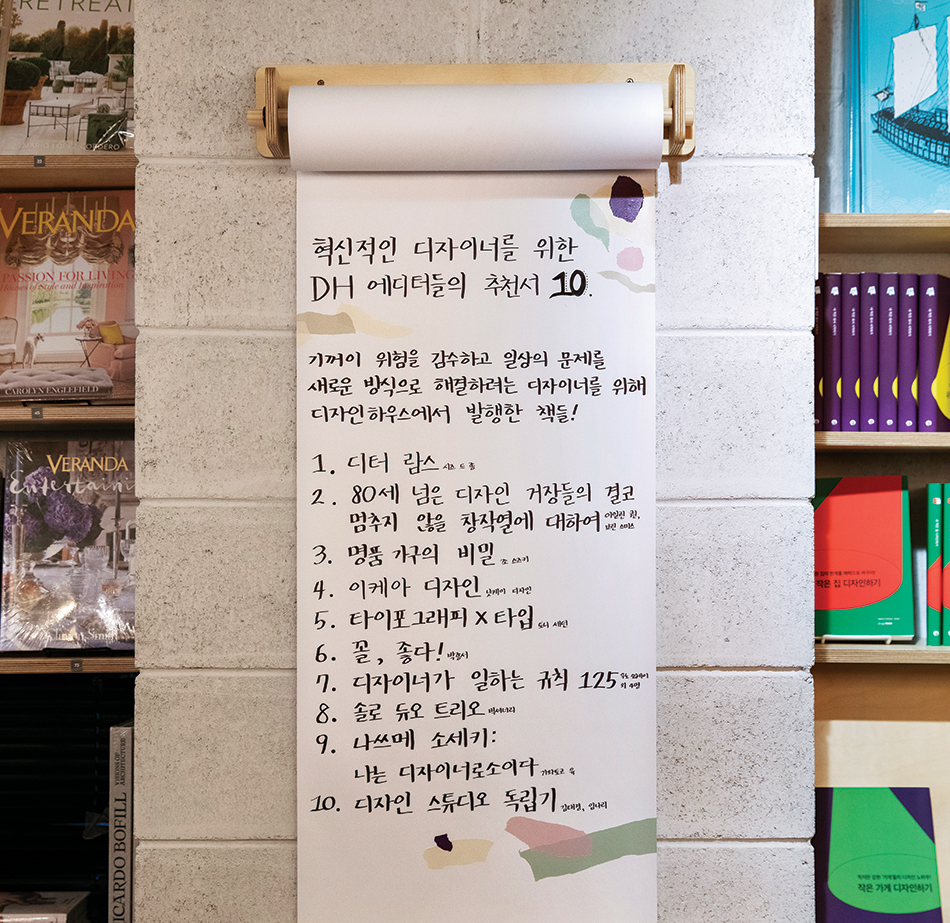 RETREAT
VERANDA
PASSION FOR LIVING
Houses of Style and Inspiration
CAROLYN ENGLEFIELD
VERANDA
Entertaining
RICARDO BOFILL
VISIONS OF
ARCHITECTURE
혁신적인 디자이너를 위한
DH 에디터들의 추천서 10.
기꺼이 위험을 감수하고 일상의 문제를
새로운 방식으로 해결하려는 디자이너를 위해
디자인하우스에서 발행한 책들!
1. 디터 람스
2. 80세 넘은 디자인 거장들의 결코
멈추지 않을 창작열에 대하여
3. 명품 가구의 비밀
4. 이케아 디자인
5. 타이포그래피 X 타입
6. 꼴, 좋다! 박종서
7. 디자이너가 일하는 규칙 125
8. 솔로 듀오 트리오
9. 나쓰메 소세키:
나는 디자이너로소이다
10. 디자인 스튜디오 독립기
작은 집 디자인하기
작은 가게 디자인하기